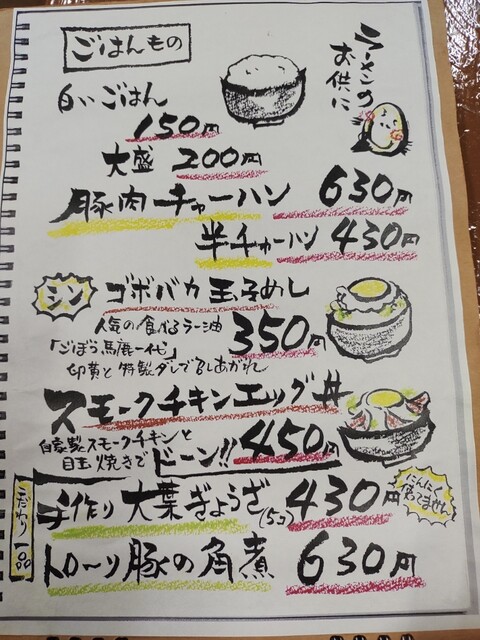 ごはんもの
ラーメンの
お供に
白いごはん
150円
大盛 200円
豚肉チャーハン 630円
半チャーハン 430円
シン
ゴボバカ玉子めし
人気の食べるラー油 350円
「ごぼう馬鹿一代」
卵黄と特製ダレでめしあがれ
スモークチキンエッグ丼
自家製スモークチキンと 450円
目玉焼きでドーン!!
こだわり一品
手作り大葉ぎょうざ(5コ) 430円
にんにく
使ってません。
トロ〜リ豚の角煮 630円